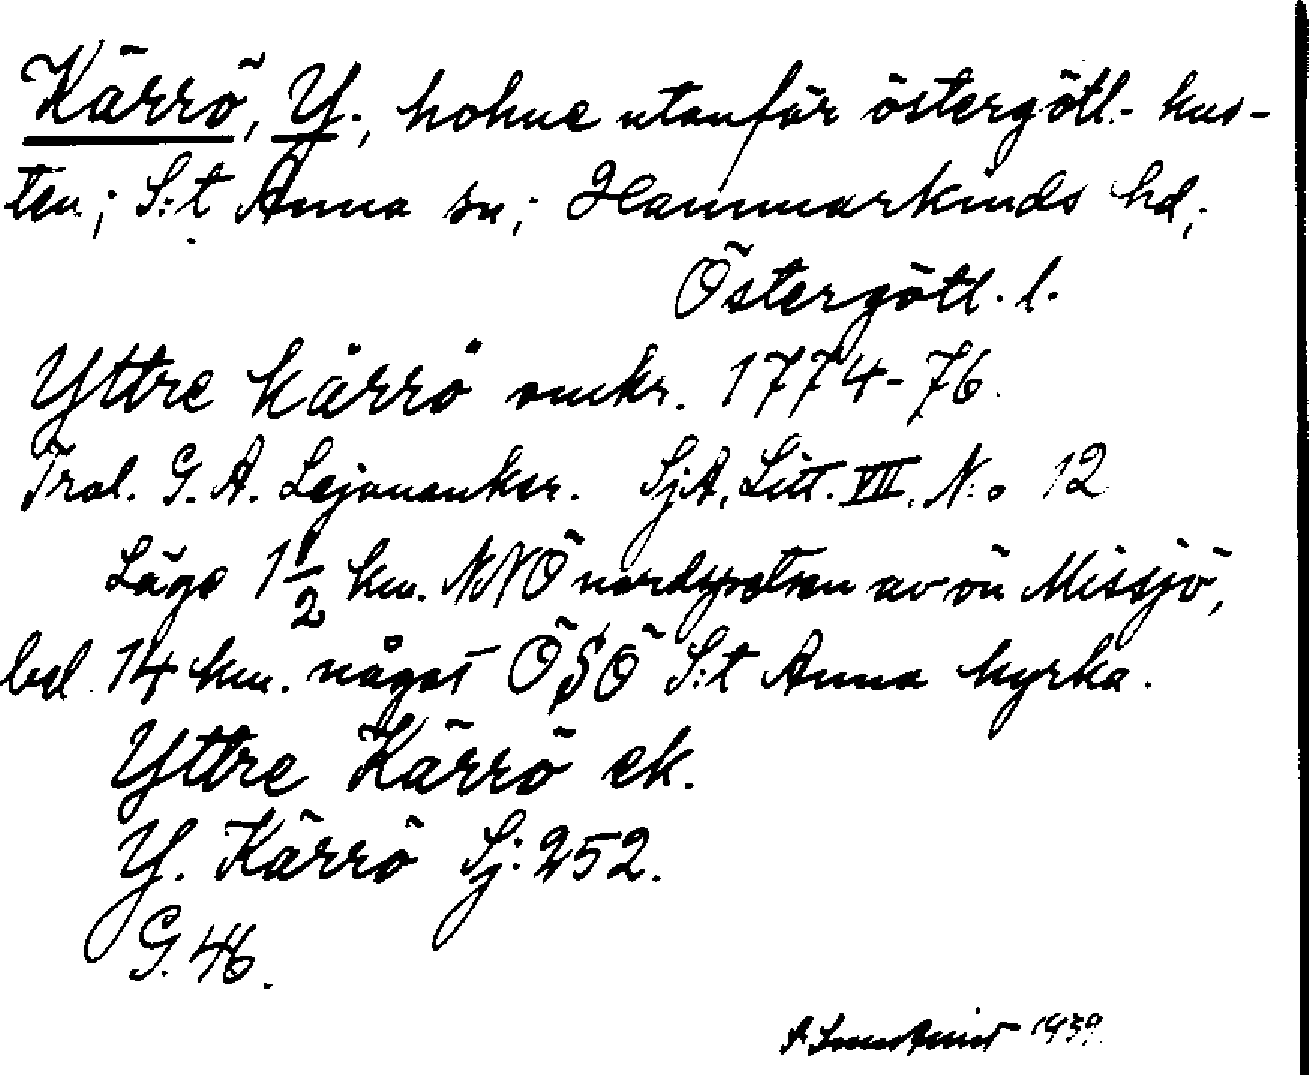 Kärrö, Y., holme utanför östergötl. kus-
ten; S:t Anna sn; Hammarkinds hd;
Östergötl. l.
Yttre Kärrö omkr. 1774-76.
Trol. G. A. Lejonanker. SjA, Litt. VII. N:o 12
Läge 1 1/2 km. NNÖ nordspetsen av ön Missjö,
bel. 14 km. något ÖSÖ S:t Anna kyrka.
Yttre Kärrö ek.
Y. Kärrö Sj: 252.
G. 46.
1939.